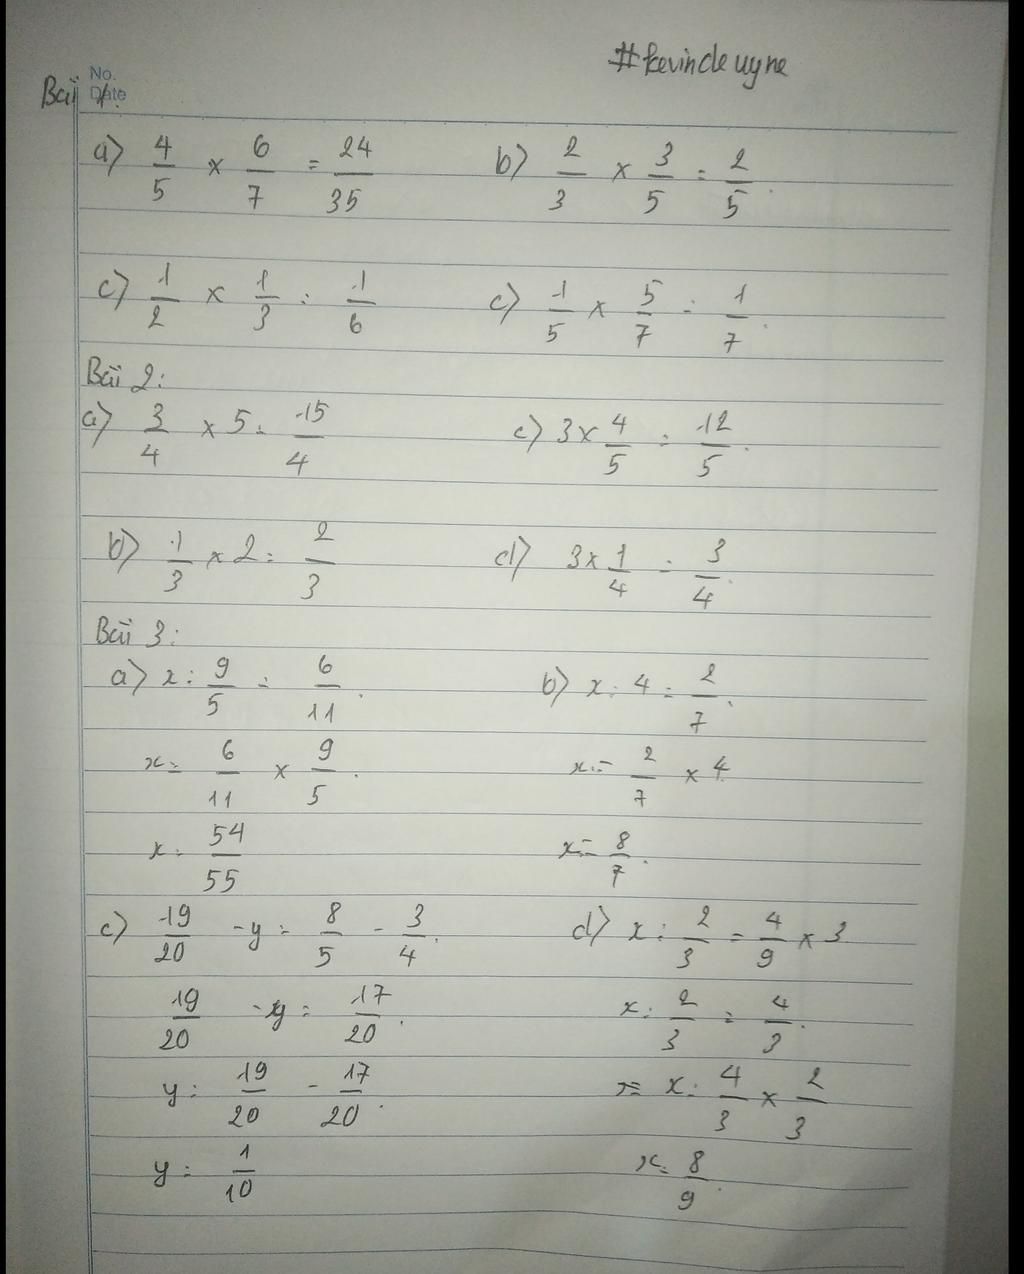 #kevindeuyne
No.
Bài 1: Date
a) 4/5 x 6/7 = 24/35 b) 2/3 x 3/5 = 2/5.
c) 1/2 x 1/3 = 1/6 c) 1/5 x 5/7 = 1/7.
Bài 2:
a) 3/4 x 5 = 15/4 c) 3 x 4/5 = 12/5.
b) 1/3 x 2 = 2/3 d) 3 x 1/4 = 3/4.
Bài 3:
a) x : 9/5 = 6/11. b) x : 4 = 2/7.
x = 6/11 x 9/5. x = 2/7 x 4
x = 54/55 x = 8/7.
c) 19/20 - y = 8/5 - 3/4. d) x : 2/3 = 4/9 x 3
19/20 - y = 17/20. x : 2/3 = 4/3.
y = 19/20 - 17/20. x = 4/3 x 2/3
y = 1/10 x = 8/9.